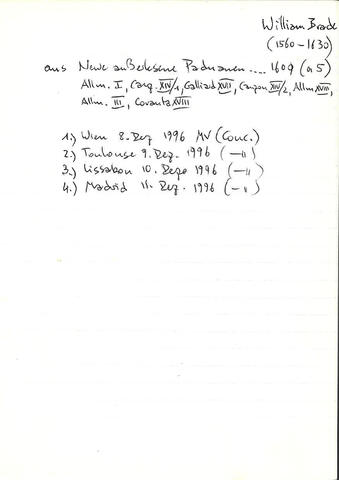 William Brade
(1560-1630)
aus Newe außerlesene Paduanen .... 1609 (a 5)
Allm. I, Canz. XIV/1, Galliard XVII, Canzon XIV/2, Allm XVIII,
Allm. III, Coranta XVIII
1.) Wien 8. Dez 1996 MV (Conc.)
2.) Toulouse 9. Dez. 1996 (—11)
3.) Lissabon 10. Deze 1996 (—11)
4.) Madrid 11. Dez. 1996 (—11)